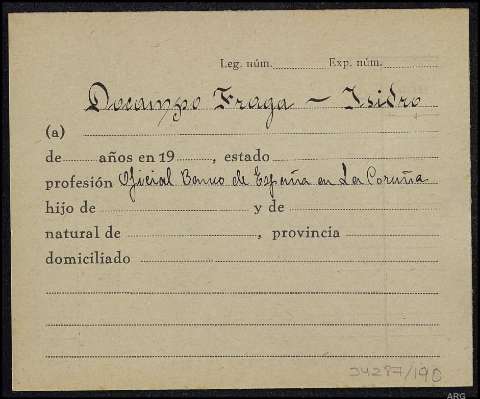 Leg. núm. Exp. núm.
Docampo Fraga - Isidro
(a)
de años en 19 , estado
profesión Oficial Banco de España en La Coruña
hijo de y de
natural de , provincia
domiciliado
34287/190
ARG